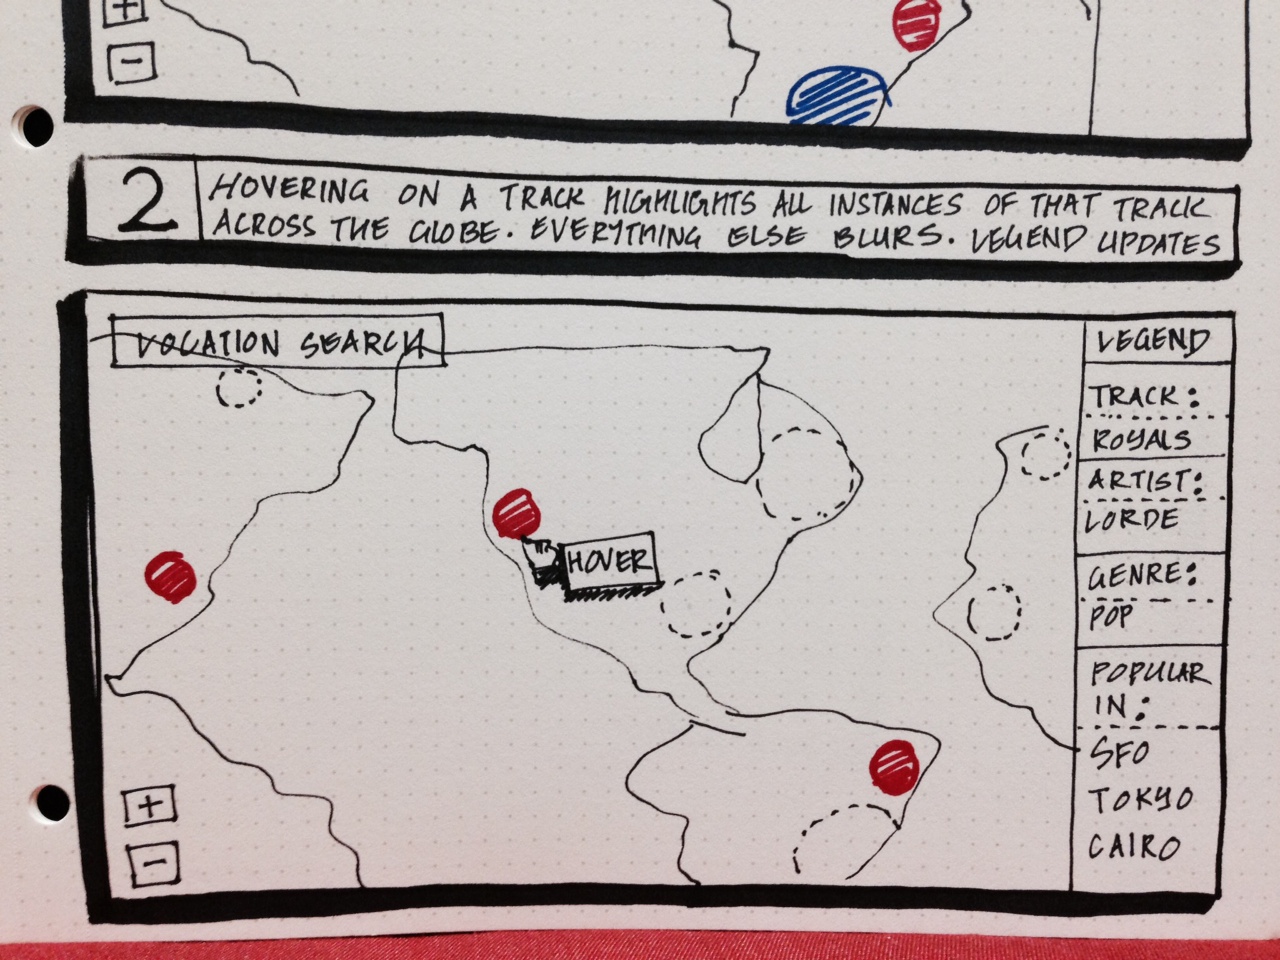 +
-
2
HOVERING ON A TRACK HIGHLIGHTS ALL INSTANCES OF THAT TRACK
ACROSS THE GLOBE. EVERYTHING ELSE BLURS. LEGEND UPDATES
VOCATION SEARCH
LEGEND
TRACK:
ROYALS
ARTIST:
LORDE
GENRE:
POP
POPULAR
IN:
SFO
TOKYO
CAIRO
HOVER
+
-